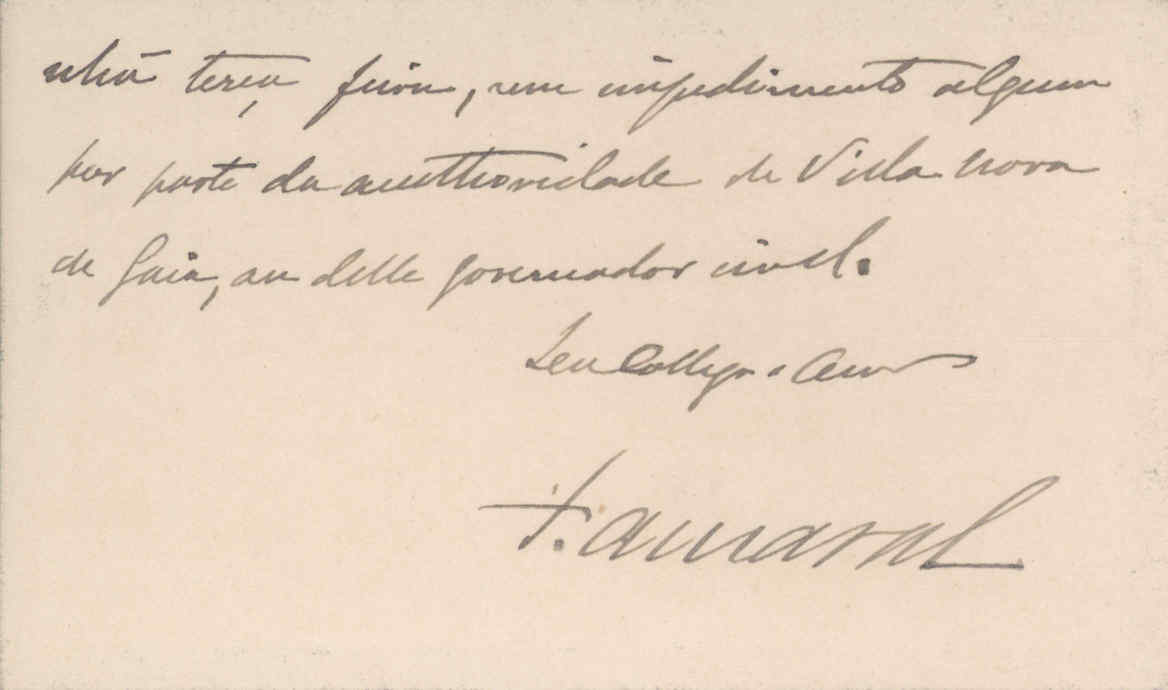 nhã terça feira, sem impedimento algum
por parte da authoridade de Villa nova
de Gaia, ou delle governador civil.
Seu Collega e Amº
F. Amaral